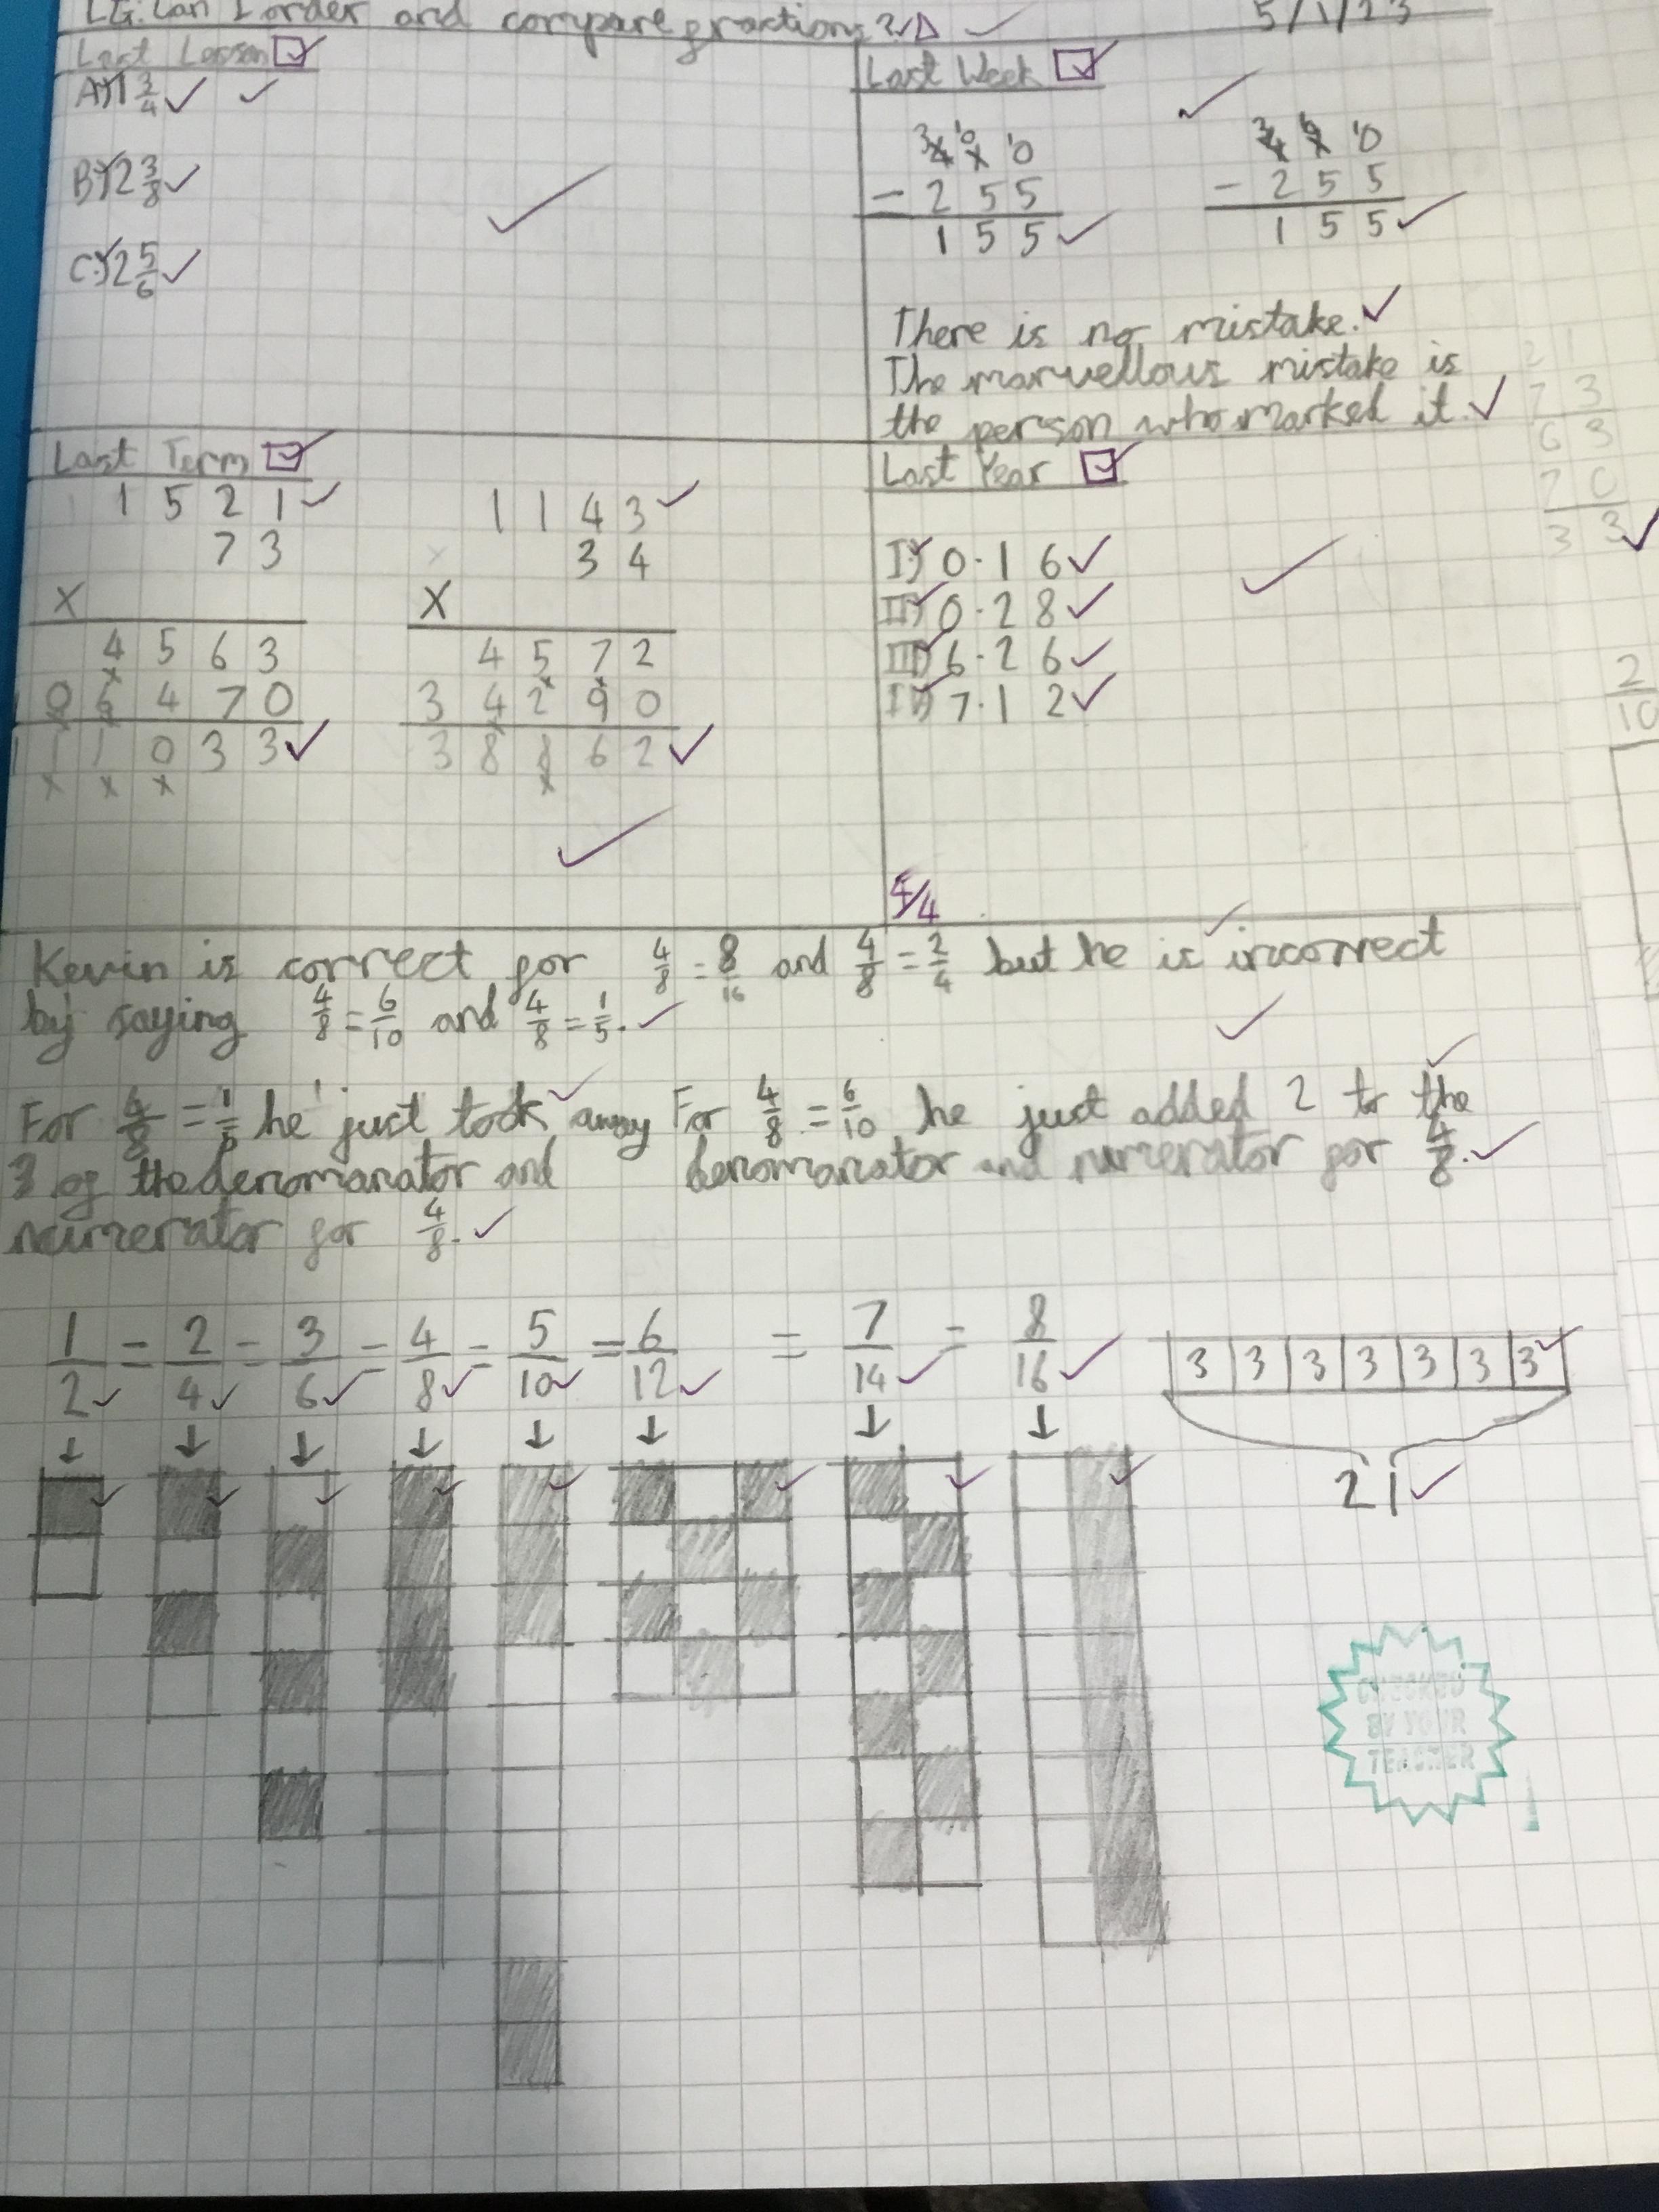 LG: Can I order and compare fractions? 5/1/23
Last Lesson
A) 1 3/4
B) 2 3/8
C) 2 5/6
Last Week
3 10 10
- 2 5 5
1 5 5
- 2 5 5
1 5 5
There is no mistake.
The marvellous mistake is
the person who marked it.
Last Term
1 5 2 1
7 3
X
4 5 6 3
1 0 6 4 7 0
1 1 1 0 3 3
1 1 4 3
3 4
X
4 5 7 2
3 4 2 9 0
3 8 8 6 2
Last Year
I) 0.16
II) 0.28
III) 6.26
IV) 7.12
4/4
Kevin is correct for 4/8 = 8/16 and 4/8 = 2/4 but he is incorrect
by saying 4/8 = 6/10 and 4/8 = 1/5.
For 4/8 = 1/5 he just took away
3 of the denomanator and
numerator for 4/8.
For 4/8 = 6/10 he just added 2 to the
denomanator and numerator for 4/8.
1/2 = 2/4 = 3/6 = 4/8 = 5/10 = 6/12 = 7/14 = 8/16
3 3 3 3 3 3 3
21
CHECKED
BY YOUR
TEACHER
2/10